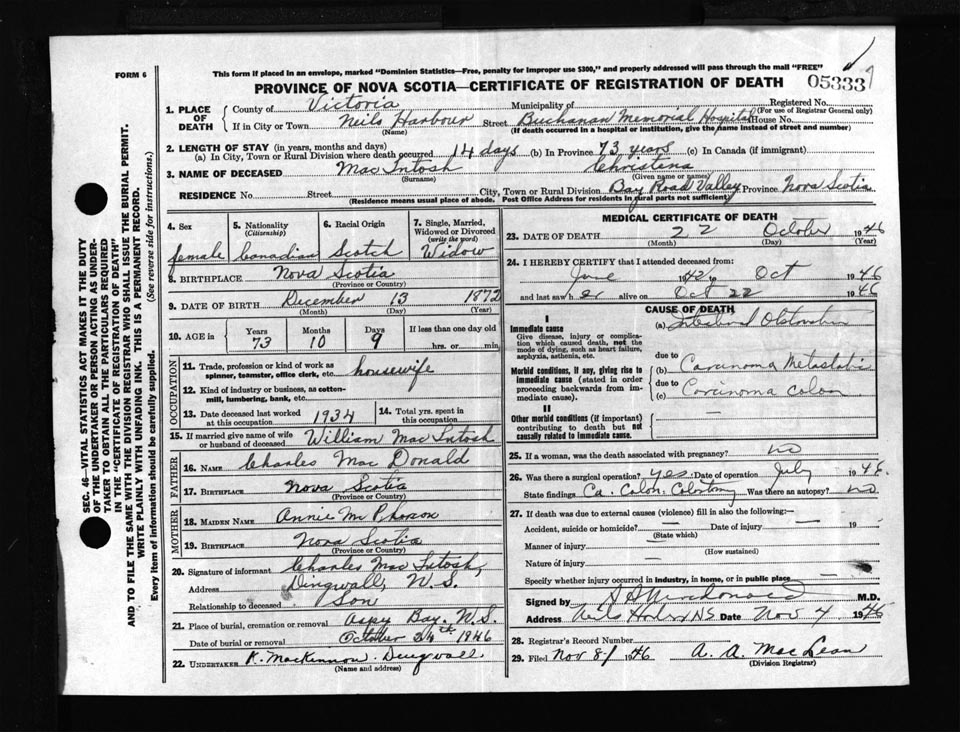 FORM 6
This form if placed in an envelope, marked "Dominion Statistics—Free, penalty for improper use $300," and properly addressed will pass through the mail "FREE"
PROVINCE OF NOVA SCOTIA—CERTIFICATE OF REGISTRATION OF DEATH
05333
1. PLACE OF DEATH
County of Victoria Municipality of Registered No.
(For use of Registrar General only)
If in City or Town Neils Harbour Street Buchanan Memorial Hospital House No.
(Name) (If death occurred in a hospital or institution, give the name instead of street and number)
2. LENGTH OF STAY (in years, months and days)
(a) In City, Town or Rural Division where death occurred 14 days (b) In Province 73 years (c) In Canada (if immigrant)
3. NAME OF DECEASED MacIntosh Christena
(Surname) (Given name or names)
RESIDENCE No. Street City, Town or Rural Division Bay Road Valley Province Nova Scotia
(Residence means usual place of abode. Post Office Address for residents in rural parts not sufficient)
4. Sex female
5. Nationality (Citizenship) Canadian
6. Racial Origin Scotch
7. Single, Married, Widowed or Divorced (write the word) Widow
8. BIRTHPLACE Nova Scotia
(Province or Country)
9. DATE OF BIRTH December 13 1872
(Month) (Day) (Year)
10. AGE in Years 73 Months 10 Days 9 If less than one day old hrs. or min.
OCCUPATION
11. Trade, profession or kind of work as spinner, teamster, office clerk, etc. housewife
12. Kind of industry or business, as cotton-mill, lumbering, bank, etc.
13. Date deceased last worked at this occupation 1934
14. Total yrs. spent in this occupation
15. If married give name of wife or husband of deceased William MacIntosh
FATHER
16. NAME Charles MacDonald
17. BIRTHPLACE Nova Scotia
(Province or Country)
MOTHER
18. MAIDEN NAME Annie McPherson
19. BIRTHPLACE Nova Scotia
(Province or Country)
20. Signature of informant Charles MacIntosh,
Address Dingwall, N.S.
Relationship to deceased Son
21. Place of burial, cremation or removal Aspy Bay, N.S.
Date of burial or removal October 24th 1946
22. UNDERTAKER K. MacKinnon Dingwall
(Name and address)
MEDICAL CERTIFICATE OF DEATH
23. DATE OF DEATH 22 October 1946
(Month) (Day) (Year)
24. I HEREBY CERTIFY that I attended deceased from:
June 1942 to Oct 1946
and last saw her alive on Oct 22 1946
CAUSE OF DEATH
I
Immediate cause
Give disease, injury or complication which caused death, not the mode of dying, such as heart failure, asphyxia, asthenia, etc.
(a)
due to
Morbid conditions, if any, giving rise to immediate cause (stated in order proceeding backwards from immediate cause).
(b) Carcinoma
due to
(c) Carcinoma colon
II
Other morbid conditions (if important) contributing to death but not causally related to immediate cause.
25. If a woman, was the death associated with pregnancy? no
26. Was there a surgical operation? yes. Date of operation July 1946.
State findings Ca. Colon. Colostomy Was there an autopsy? no.
27. If death was due to external causes (violence) fill in also the following:—
Accident, suicide or homicide? Date of injury 19
(State which)
Manner of injury
(How sustained)
Nature of injury
Specify whether injury occurred in industry, in home, or in public place
Signed by MacDonald M.D.
Address Neils Harbor NS Date Nov 4 1946
28. Registrar's Record Number
29. Filed Nov 8/ 1946 A. A. MacLean
(Division Registrar)
SEC. 46—VITAL STATISTICS ACT MAKES IT THE DUTY
OF THE UNDERTAKER OR PERSON ACTING AS UNDER-
TAKER TO OBTAIN ALL THE PARTICULARS REQUIRED
IN THE "CERTIFICATE OF REGISTRATION OF DEATH"
AND TO FILE THE SAME WITH THE DIVISION REGISTRAR WHO SHALL ISSUE THE BURIAL PERMIT.
WRITE PLAINLY WITH UNFADING INK. THIS IS A PERMANENT RECORD.
Every item of information should be carefully supplied. (See reverse side for instructions.)